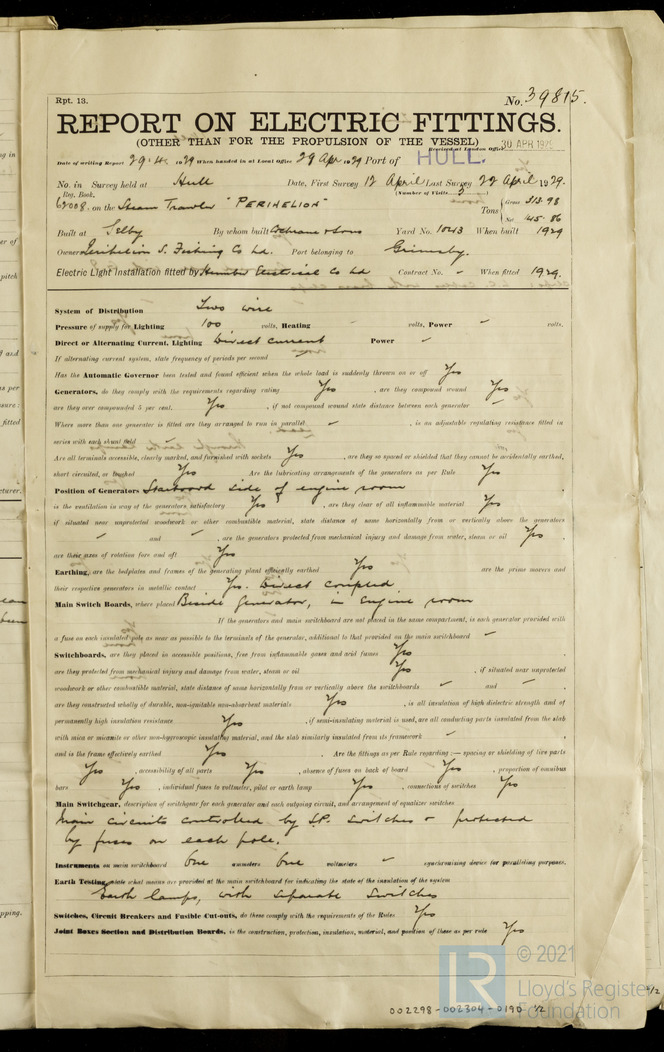 Rpt. 13.
No. 39815.
REPORT ON ELECTRIC FITTINGS.
(OTHER THAN FOR THE PROPULSION OF THE VESSEL)
Received at London Office 30 APR 1929
Date of writing Report 29.4. 1929 When handed in at Local Office 29 Apr 1929 Port of HULL.
No. in Survey held at Hull Date, First Survey 12 April Last Survey 22 April 1929.
Reg. Book. (Number of Visits 3)
62008. on the Steam Trawler "PERIHELION" Tons { Gross 313.98
Net 145.86
Built at Selby By whom built Cochrane & Sons Yard No. 1043 When built 1929
Owners Perihelion S. Fishing Co Ld. Port belonging to Grimsby.
Electric Light Installation fitted by Humber Electrical Co Ld Contract No. - When fitted 1929.
System of Distribution Two wire
Pressure of supply for Lighting 100 volts, Heating - volts, Power - volts.
Direct or Alternating Current, Lighting Direct current Power -
If alternating current system, state frequency of periods per second -
Has the Automatic Governor been tested and found efficient when the whole load is suddenly thrown on or off Yes
Generators, do they comply with the requirements regarding rating Yes , are they compound wound Yes
are they over compounded 5 per cent. Yes , if not compound wound state distance between each generator -
Where more than one generator is fitted are they arranged to run in parallel - , is an adjustable regulating resistance fitted in
series with each shunt field -
Are all terminals accessible, clearly marked, and furnished with sockets Yes , are they so spaced or shielded that they cannot be accidentally earthed,
short circuited, or touched Yes Are the lubricating arrangements of the generators as per Rule Yes
Position of Generators Starboard side of engine room
is the ventilation in way of the generators satisfactory Yes , are they clear of all inflammable material Yes
if situated near unprotected woodwork or other combustible material, state distance of same horizontally from or vertically above the generators
- and - , are the generators protected from mechanical injury and damage from water, steam or oil Yes ,
are their axes of rotation fore and aft Yes
Earthing, are the bedplates and frames of the generating plant efficiently earthed Yes are the prime movers and
their respective generators in metallic contact Yes. Direct coupled
Main Switch Boards, where placed Beside Generator, in Engine room
If the generators and main switchboard are not placed in the same compartment, is each generator provided with
a fuse on each insulated pole as near as possible to the terminals of the generator, additional to that provided on the main switchboard -
Switchboards, are they placed in accessible positions, free from inflammable gases and acid fumes Yes
are they protected from mechanical injury and damage from water, steam or oil Yes , if situated near unprotected
woodwork or other combustible material, state distance of same horizontally from or vertically above the switchboards - and - ,
are they constructed wholly of durable, non-ignitable non-absorbent materials Yes , is all insulation of high dielectric strength and of
permanently high insulation resistance Yes , if semi-insulating material is used, are all conducting parts insulated from the slab
with mica or micanite or other non-hygroscopic insulating material, and the slab similarly insulated from its framework - ,
and is the frame effectively earthed Yes . Are the fittings as per Rule regarding :— spacing or shielding of live parts
Yes , accessibility of all parts Yes , absence of fuses on back of board Yes , proportion of omnibus
bars Yes , individual fuses to voltmeter, pilot or earth lamp Yes , connections of switches Yes
Main Switchgear, description of switchgear for each generator and each outgoing circuit, and arrangement of equalizer switches
Main circuits controlled by S.P. switches & protected
by fuses on each pole.
Instruments on main switchboard One ammeters One voltmeters - synchronising device for paralleling purposes.
Earth Testing, state what means are provided at the main switchboard for indicating the state of the insulation of the system
Earth lamps, with separate switches
Switches, Circuit Breakers and Fusible Cut-outs, do these comply with the requirements of the Rules Yes
Joint Boxes Section and Distribution Boards, is the construction, protection, insulation, material, and position of these as per rule Yes
LR © 2021
Lloyd's Register
Foundation
002298-002304-0190 1/2